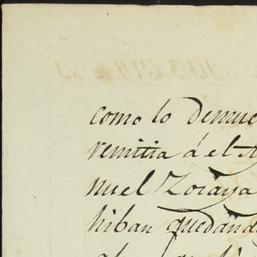 como lo demue
remitia á el A
nuel Zoraya
hiban quedand